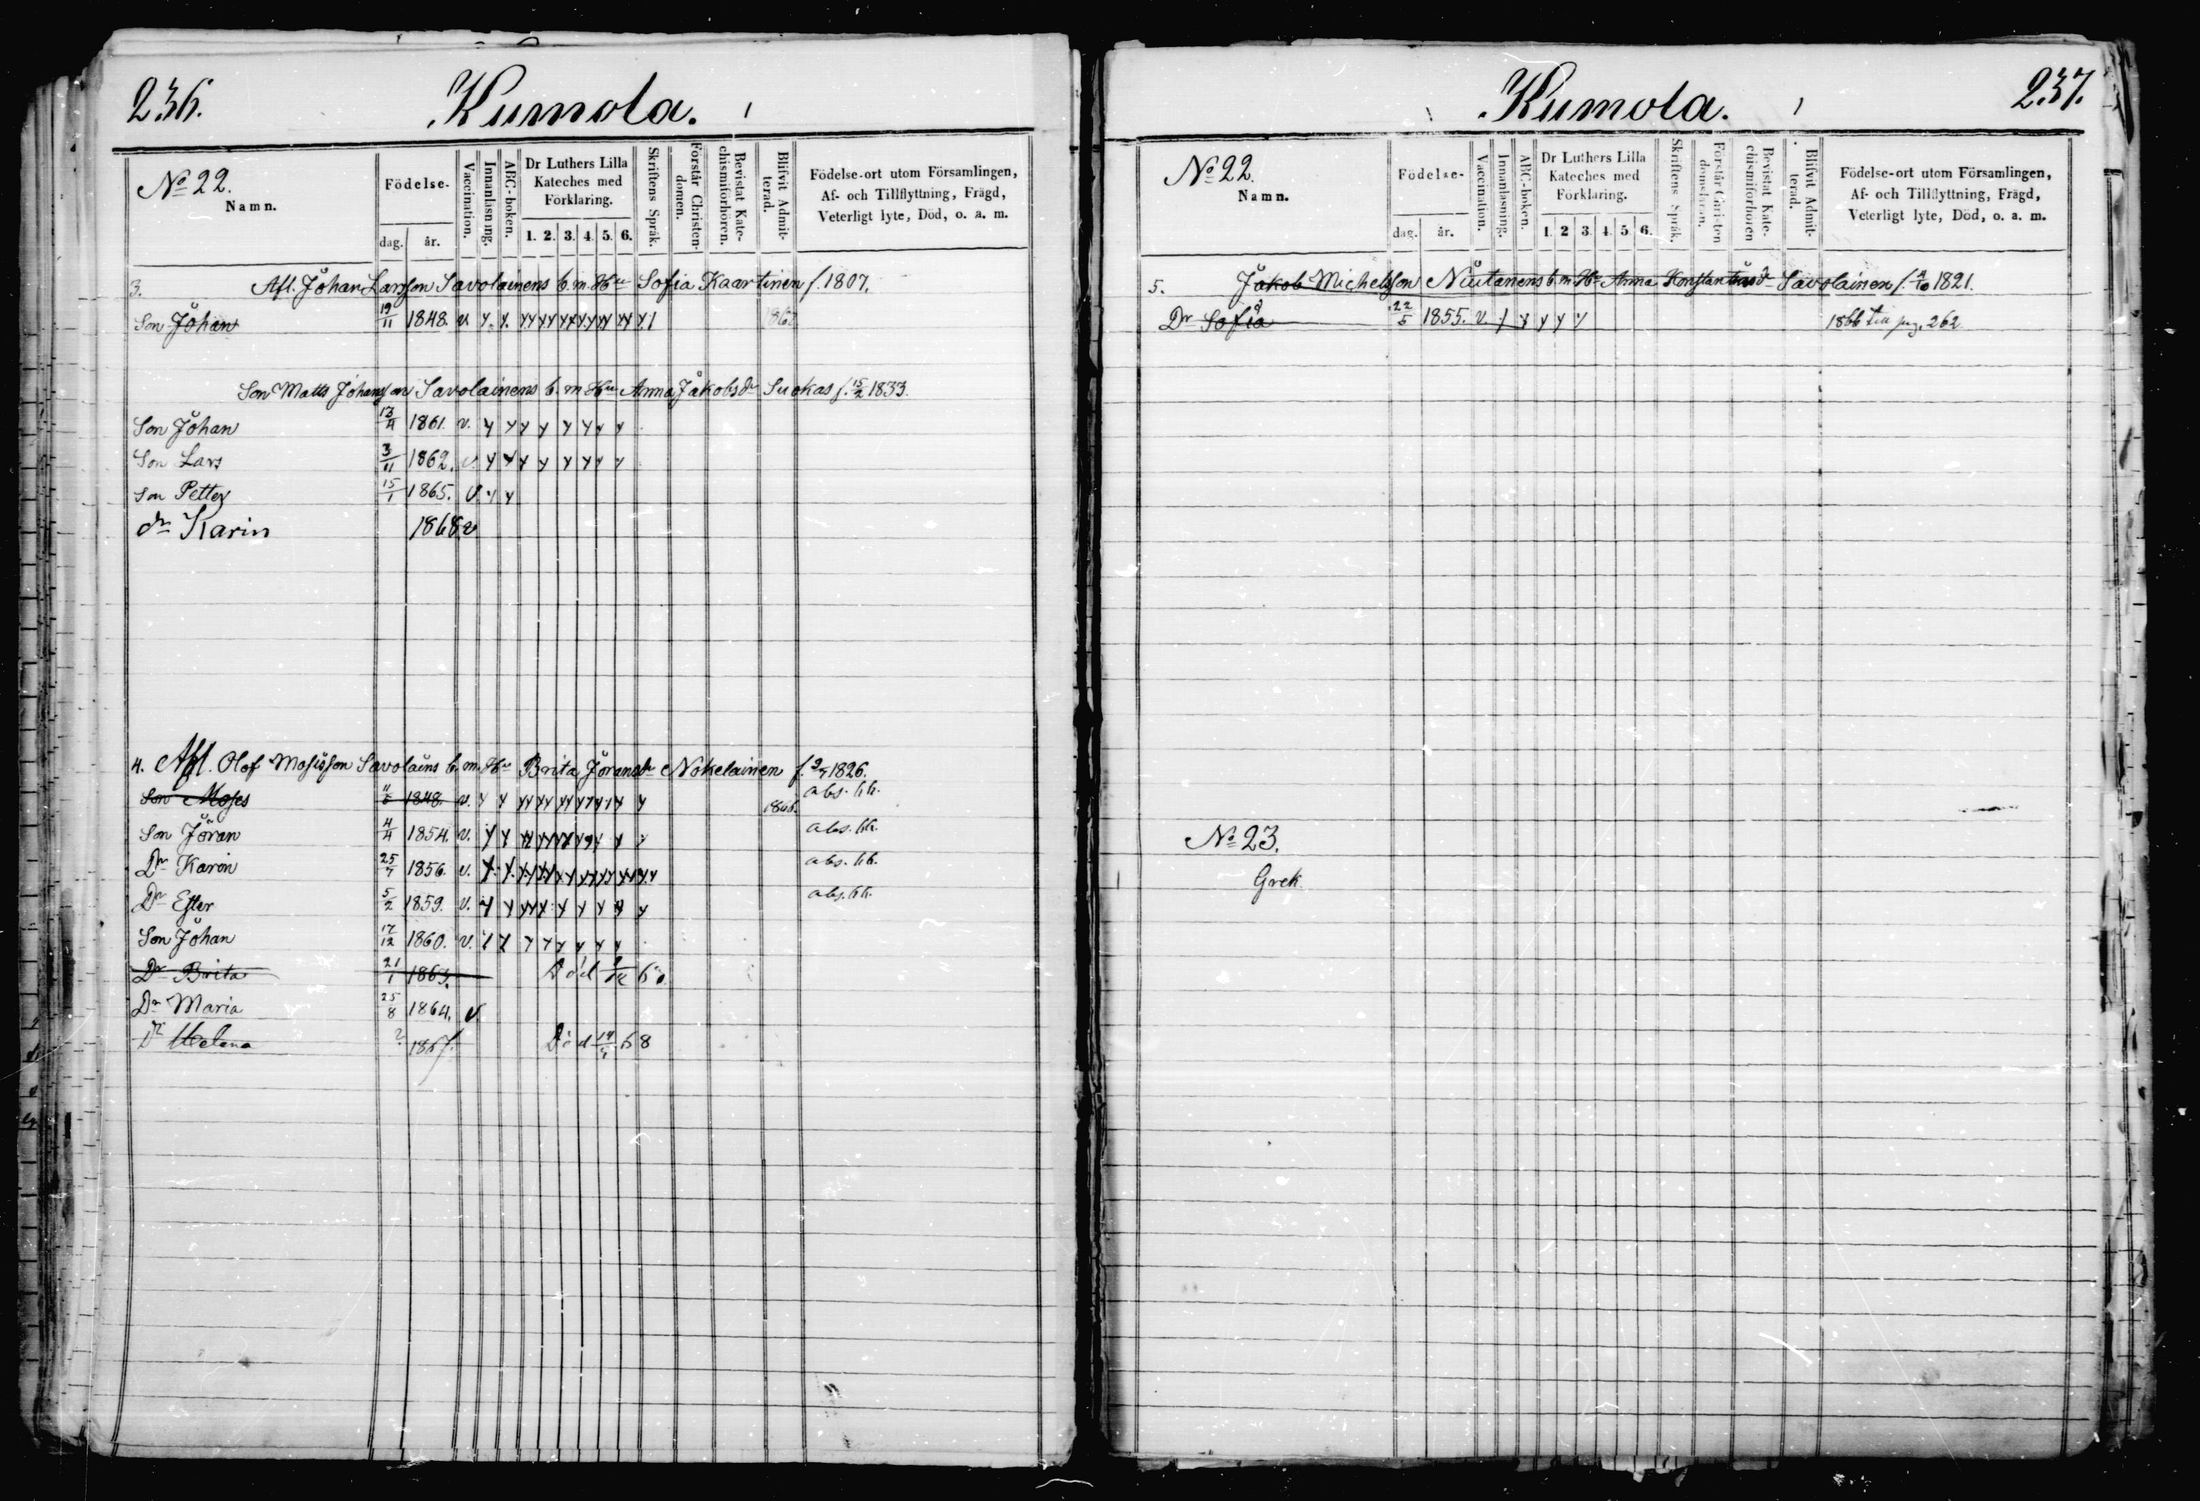 236.
Kumola.
No 22.
Namn.
Födelse-
dag. år.
Vaccination.
Innanläsning.
ABC-boken.
Dr Luthers Lilla Kateches med Förklaring.
1. 2. 3. 4. 5. 6.
Skriftens Språk.
Förstår Christendomen.
Bevistat Katechismiförhören.
Blifvit Admitterad.
Födelse-ort utom Församlingen,
Af- och Tillflyttning, Frägd,
Veterligt lyte, Död, o. a. m.
3. Afl. Johan Larsson Savolainens b. m. Hu Sofia Kaartinen f. 1807.
Son Johan 19/11 1848. v.
Son Matts Johansson Savolainens b. m. Hu Anna Jakobsdr Suokas f. 15/2 1833.
Son Johan 13/4 1861. v.
Son Lars 3/11 1862. v.
Son Petter 15/1 1865. v.
dr Karin 1868 v
4. Afl. Olof Mosisson Savolains b. m. Hu Brita Jöransdr Nokelainen f. 2/7 1826.
Son Moses 1848. v. 1866. abs. kk.
Son Jöran 4/4 1854. v. abs. kk.
Dr Karin 25/7 1856. v. abs. kk.
Dr Ester 5/2 1859. v. abs. kk.
Son Johan 17/12 1860. v.
Dr Brita 21/1 1863. Död
Dr Maria 25/8 1864. v.
Dr Helena 1867. Död 68
237.
Kumola.
No 22.
Namn.
Födelse-
dag. år.
Vaccination.
Innanläsning.
ABC-boken.
Dr Luthers Lilla Kateches med Förklaring.
1. 2 3. 4. 5. 6.
Skriftens Språk.
Förstår Christendomsläran.
Bevistat Katechismiförhören
Blifvit Admitterad.
Födelse-ort utom Församlingen,
Af- och Tillflyttning, Frägd,
Veterligt lyte, Död, o. a. m.
5. Jakob Michelsson Niutanens b. m. Hu Anna Konstantinsdr Savolainen f. 4/10 1821.
Dr Sofia 22/5 1855. v. 1866 till pag. 262
No 23.
Grek.